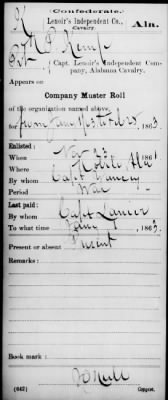 Confederate.
K
Lenoir's Independent Co., Cavalry.
Ala.
M P Kemp
Pvt, Capt. Lenoir's Independent Company, Alabama Cavalry.
Appears on
Company Muster Roll
of the organization named above,
for from Jany 1st to 186
Enlisted:
When Nov 186
Where Mobile Ala
By whom Capt
Period War
Last paid:
By whom Capt Lanier
To what time 186
Present or absent Present
Remarks:
Book mark:
(642)
Copyist.